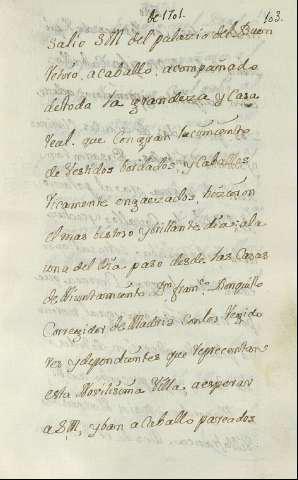 de 1701.
103.
Salio S.M. del palacio del Buen
Retiro, a caballo, acompañado
de toda la grandeza y Casa
real. que con gran lucimiento
de vestidos bordados, y caballos
ricamente enjaezados, hicieron
el mas vistoso y brillante dia; a la
una del dia paso desde las Casas
de Aiuntamiento Dn. Franco. Ronquillo
Corregidor de Madrid con los Regido
res y dependientes que representan
esta Novilisima Villa, a esperar
a S.M. y ban a Caballo pareados